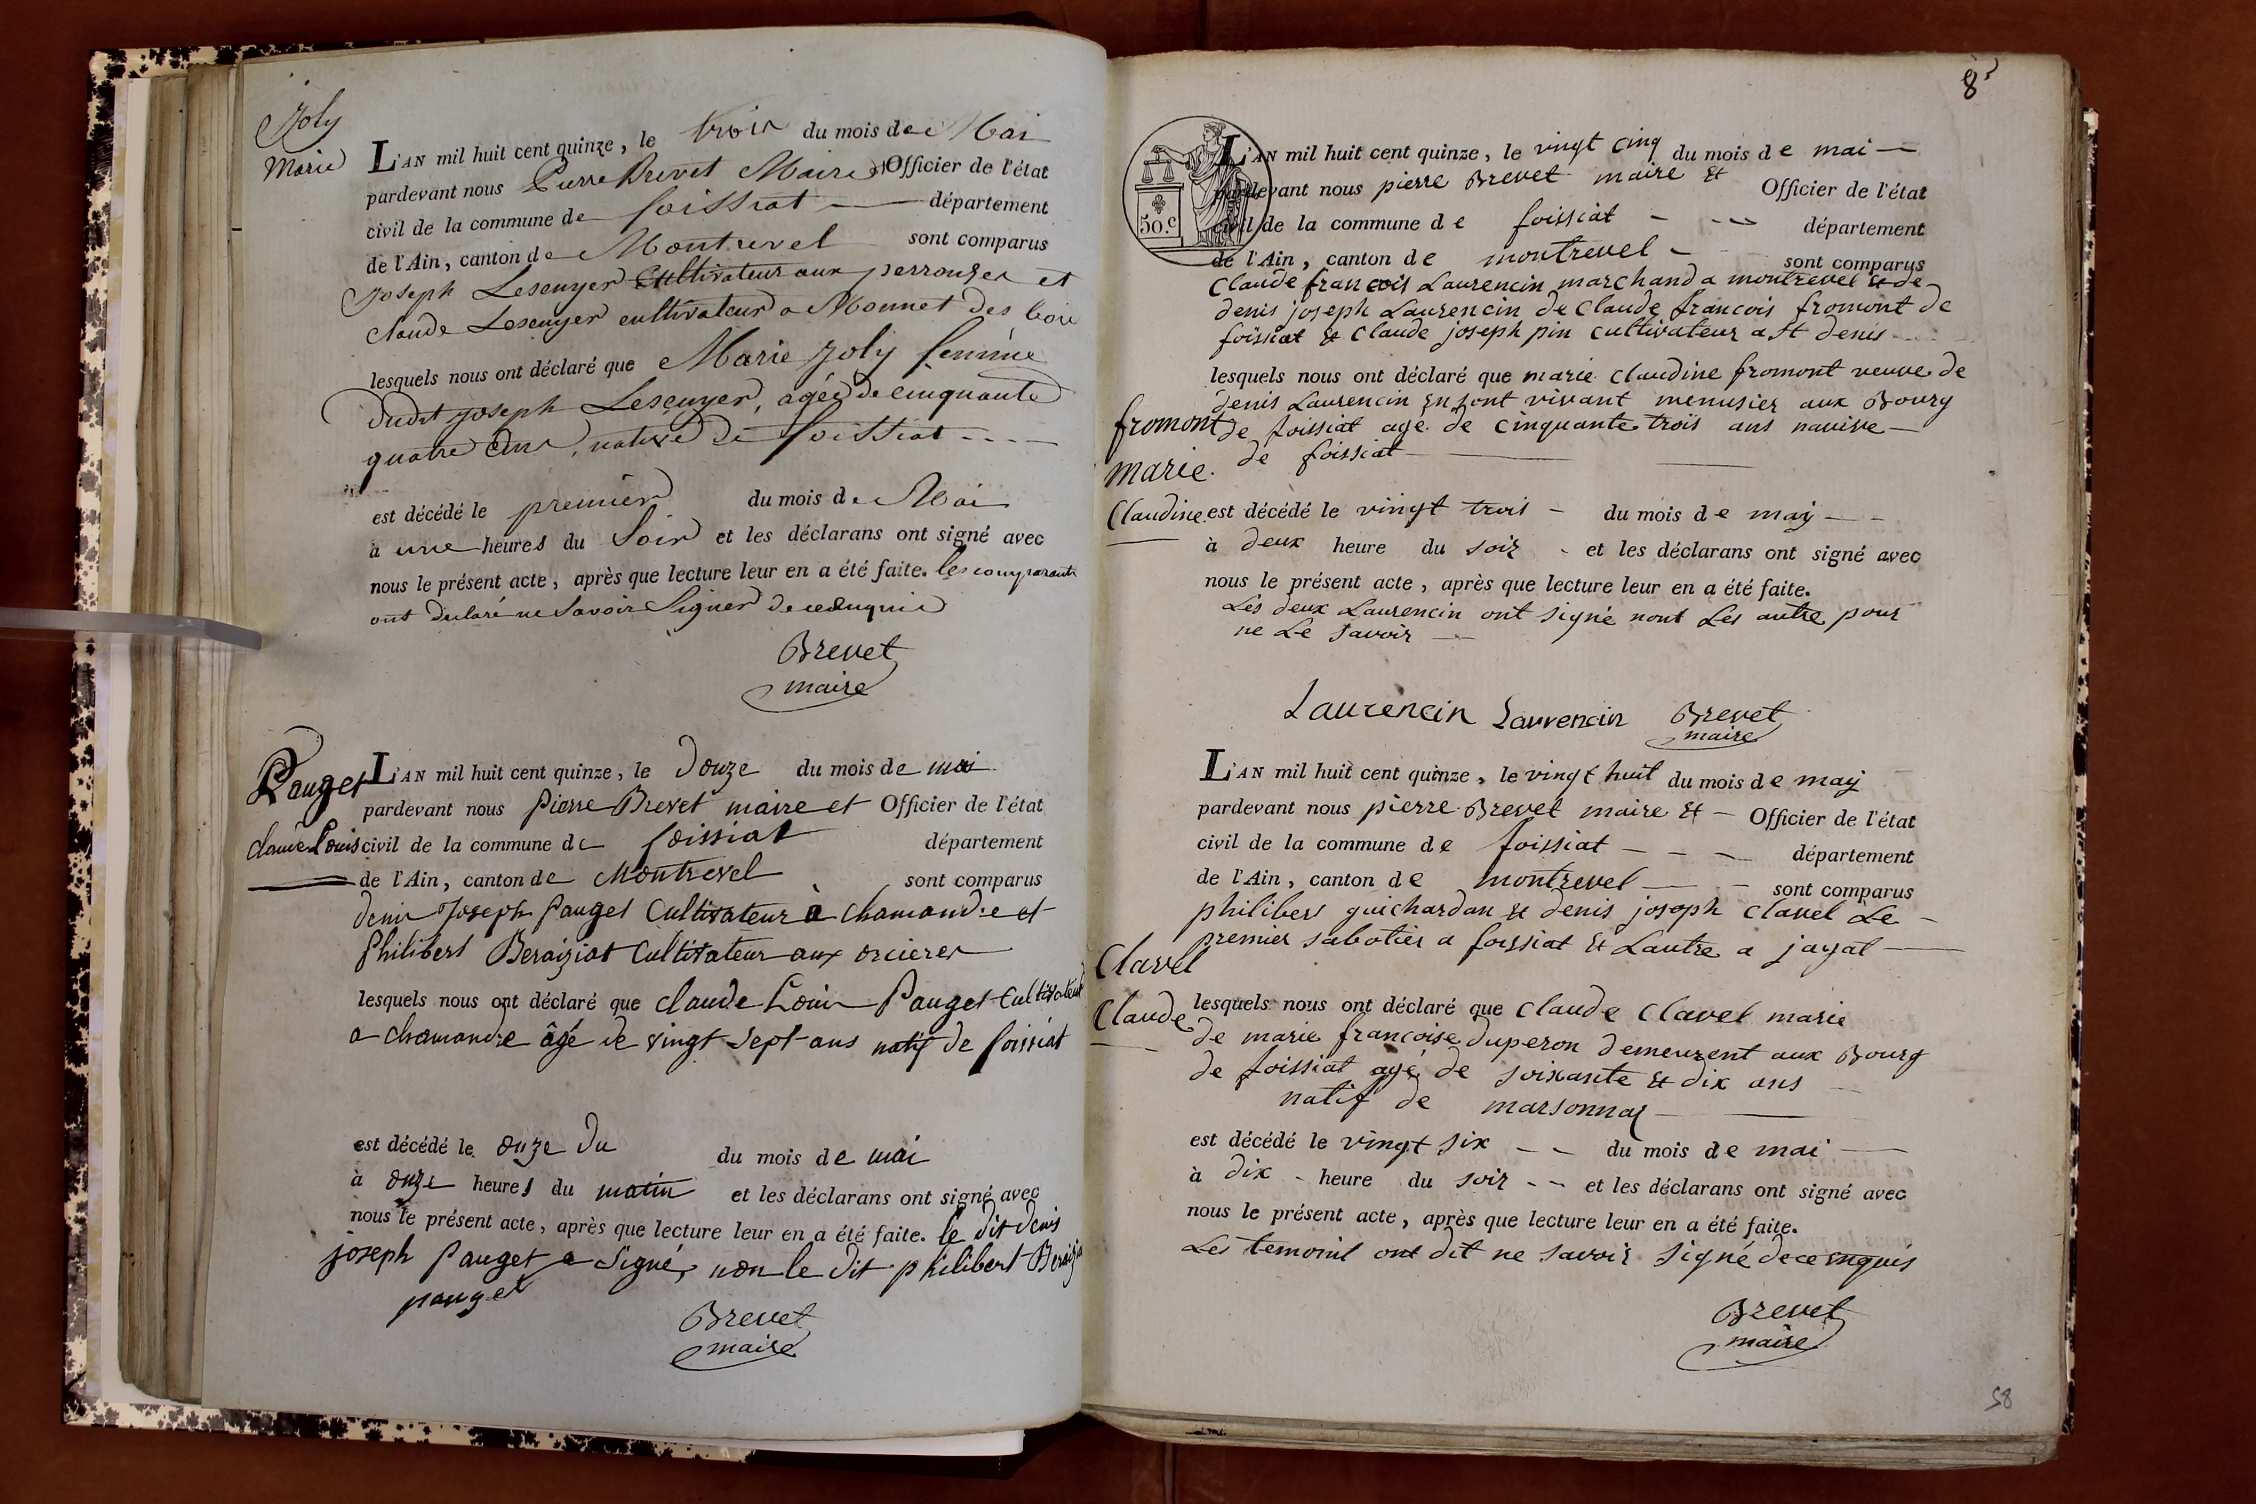 Joly
Marie
L'AN mil huit cent quinze, le trois du mois de Mai
pardevant nous Pierre Brevet Maire et Officier de l'état
civil de la commune de foissiat département
de l'Ain, canton de Montrevel sont comparus
Joseph Lescuyer Cultivateur aux perrouses et
Claude Lescuyer cultivateur a Monnet des bois
lesquels nous ont déclaré que Marie Joly femme
dudit Joseph Lescuyer, agée de cinquante
quatre ans, native de foissiat
est décédé le premier du mois de Mai
à une heures du Soir et les déclarans ont signé avec
nous le présent acte, après que lecture leur en a été faite. les comparants
ont déclaré ne Savoir Signer de ce enquis
Brevet
maire
Pauget
claude Louis
L'AN mil huit cent quinze, le douze du mois de mai
pardevant nous Pierre Brevet maire et Officier de l'état
civil de la commune de foissiat département
de l'Ain, canton de Montrevel sont comparus
denis Joseph Pauget Cultivateur à chamandre et
Philibert Beraiziat Cultivateur aux orcieres
lesquels nous ont déclaré que claude Louis Pauget Cultivateur
a chamandre âgé de vingt sept ans natif de foissiat
est décédé le onze du du mois de mai
à onze heures du matin et les déclarans ont signé avec
nous le présent acte, après que lecture leur en a été faite. le dit denis
joseph Pauget a Signé, non le dit philibert Beraiziat
pauget
Brevet
maire
8
50.c
L'AN mil huit cent quinze, le vingt cinq du mois de mai
pardevant nous pierre Brevet maire et Officier de l'état
civil de la commune de foissiat département
de l'Ain, canton de montrevel sont comparus
Claude francois Laurencin marchand a montrevel et de
denis joseph Laurencin de Claude francois fromont de
foissiat et Claude joseph pin cultivateur a St denis
lesquels nous ont déclaré que marie Claudine fromont veuve de
denis Laurencin en sont vivant menusier aux Bourg
fromont
marie.
Claudine
de foissiat agé de cinquante trois ans navive
de foissiat
est décédé le vingt trois du mois de may
à deux heure du soir et les déclarans ont signé avec
nous le présent acte, après que lecture leur en a été faite.
Les deux Laurencin ont signé nont Les autre pour
ne Le savoir
Laurencin Laurencin Brevet
maire
L'AN mil huit cent quinze, le vingt huit du mois de may
pardevant nous pierre Brevet maire et Officier de l'état
civil de la commune de foissiat département
de l'Ain, canton de montrevel sont comparus
philibert guichardan et denis joseph Clavel Le
premier sabotier a foissiat et Lautre a jayat
Clavel
Claude
lesquels nous ont déclaré que Claude Clavel marie
de marie francoise duperon demeurent aux Bourg
de foissiat agé de soixante et dix ans
natif de marsonnay
est décédé le vingt six du mois de mai
à dix heure du soir et les déclarans ont signé avec
nous le présent acte, après que lecture leur en a été faite.
Les temoinl ont dit ne savoir signé de ce enquis
Brevet
maire
58